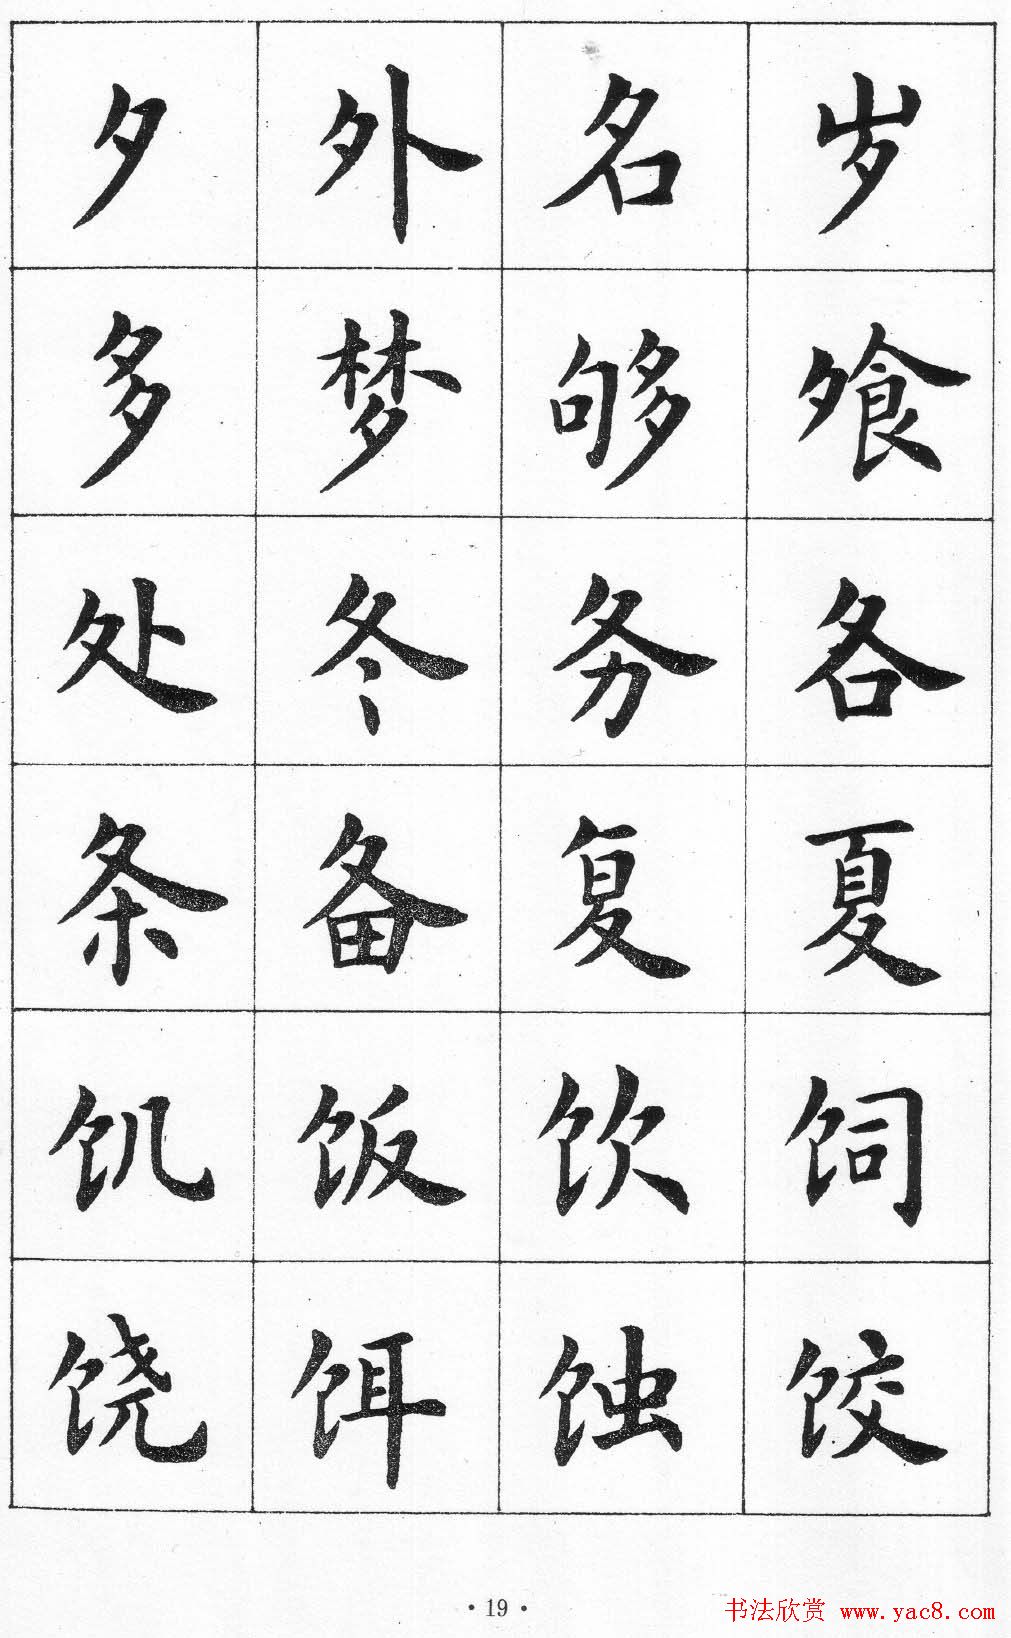 夕外名岁
多梦够飧
处冬务各
条备复夏
饥饭饮饲
饶饵蚀饺
·19·
书法欣赏 www.yac8.com